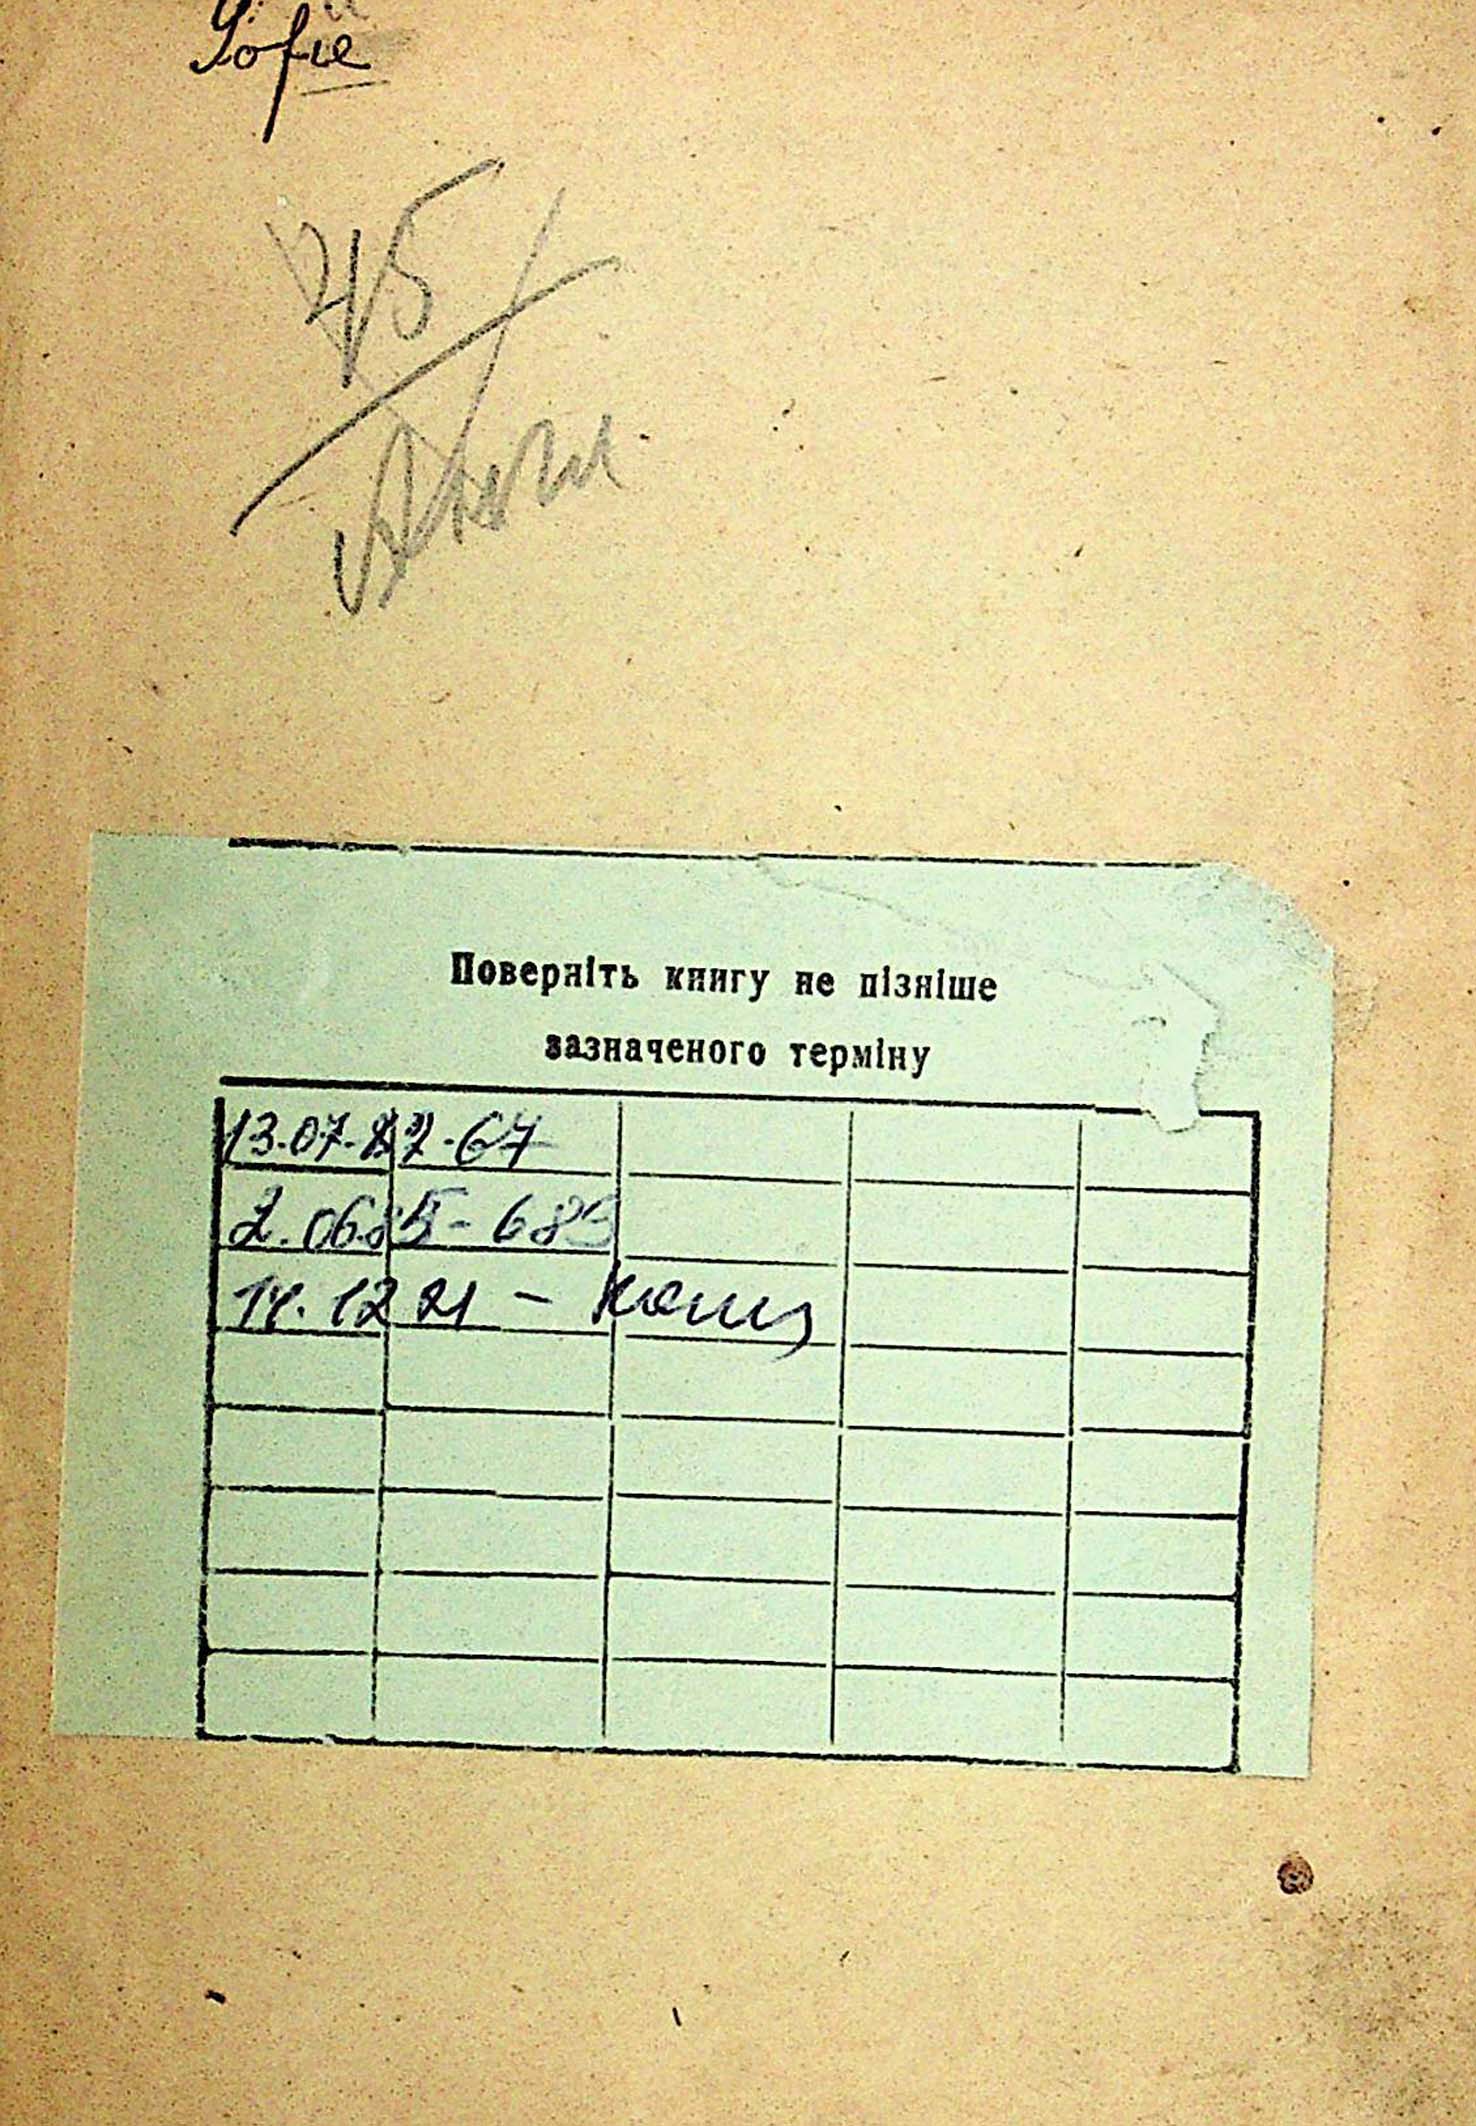 Sofie
45
Поверніть книгу не пізніше
зазначеного терміну
13.07.82-67
2.06.85-685
14.12 21 -